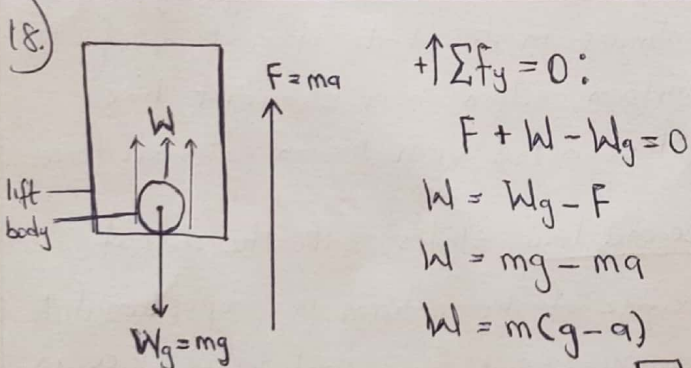 18.)
F = ma
W
lift
body
Wg = mg
+↑ Σfy = 0:
F + W - Wg = 0
W = Wg - F
W = mg - ma
W = m(g-a)